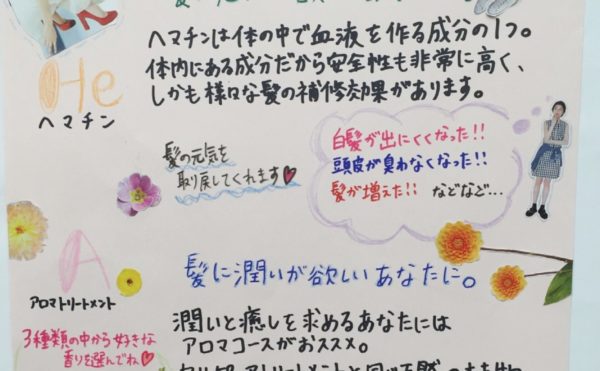 ヘマチンは体の中で血液を作る成分の1つ。
体内にある成分だから安全性も非常に高く、
しかも様々な髪の補修効果があります。
He
ヘマチン
髪の元気を
取り戻してくれます♥
白髪が出にくくなった!!
頭皮が臭わなくなった!!
髪が増えた!! などなど…
A
アロマトリートメント
髪に潤いが欲しいあなたに。
3種類の中から好きな
香りを選んでね♥
潤いと癒しを求めるあなたには
アロマコースがおススメ。